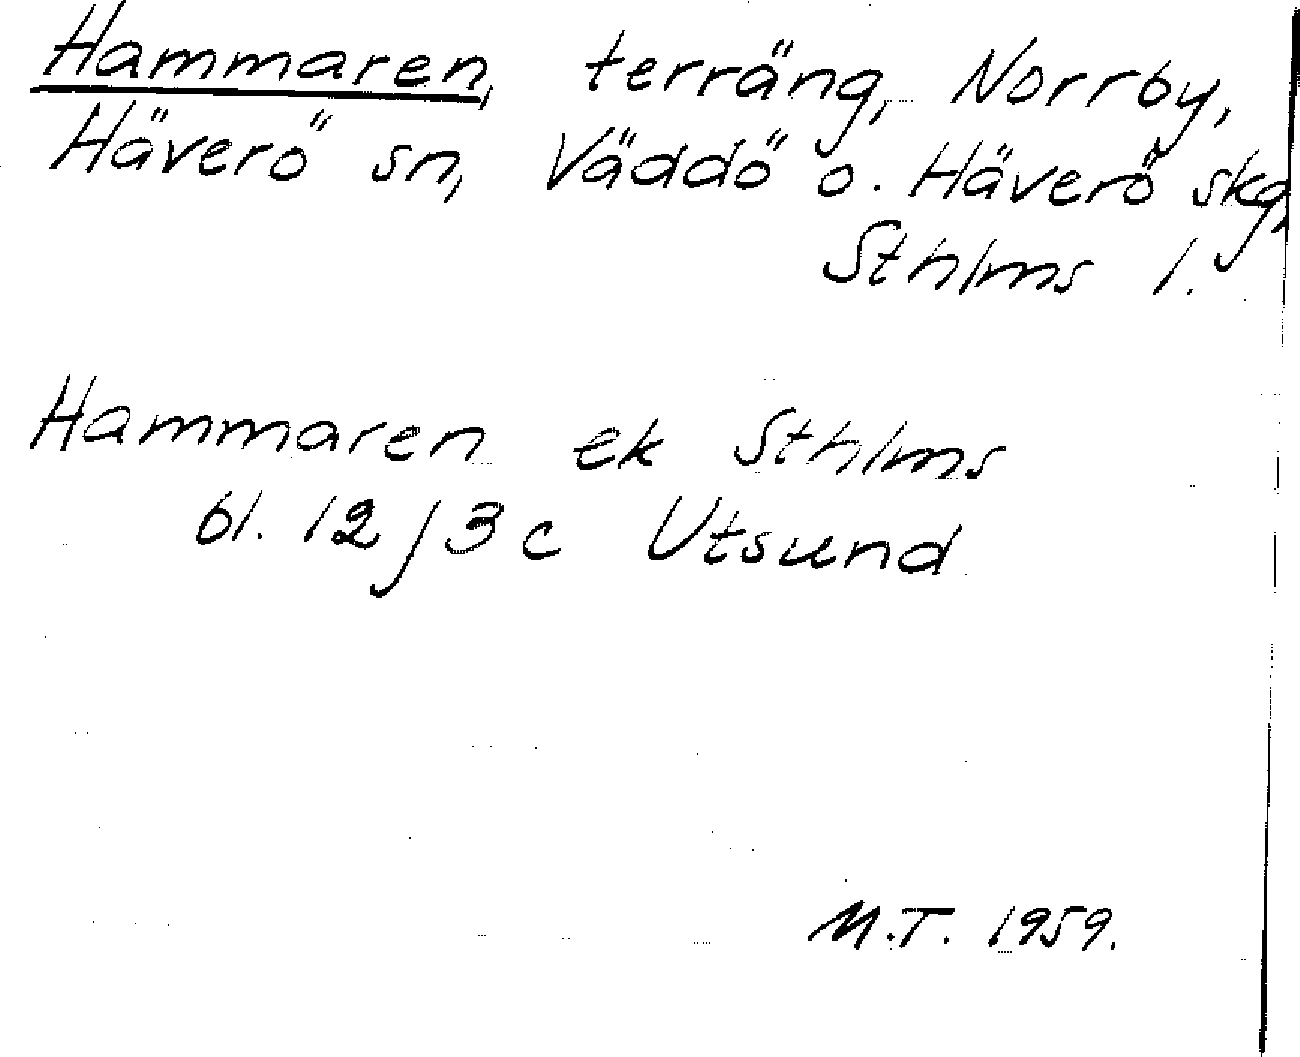 Hammaren, terräng, Norrby,
Häverö sn, Väddö o. Häverö skg,
Sthlms l.
Hammaren ek Sthlms
bl. 12 j 3 c Utsund
M.T. 1959.